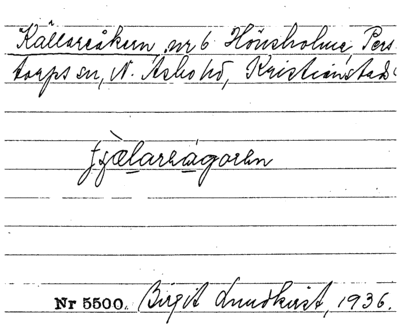 Källareåkern nr 6 Hönsholma, Pers-
torps sn, N. Åsbo hd, Kristianstads
tjælareágoren
Nr 5500. Birgit Lundkvist, 1936.